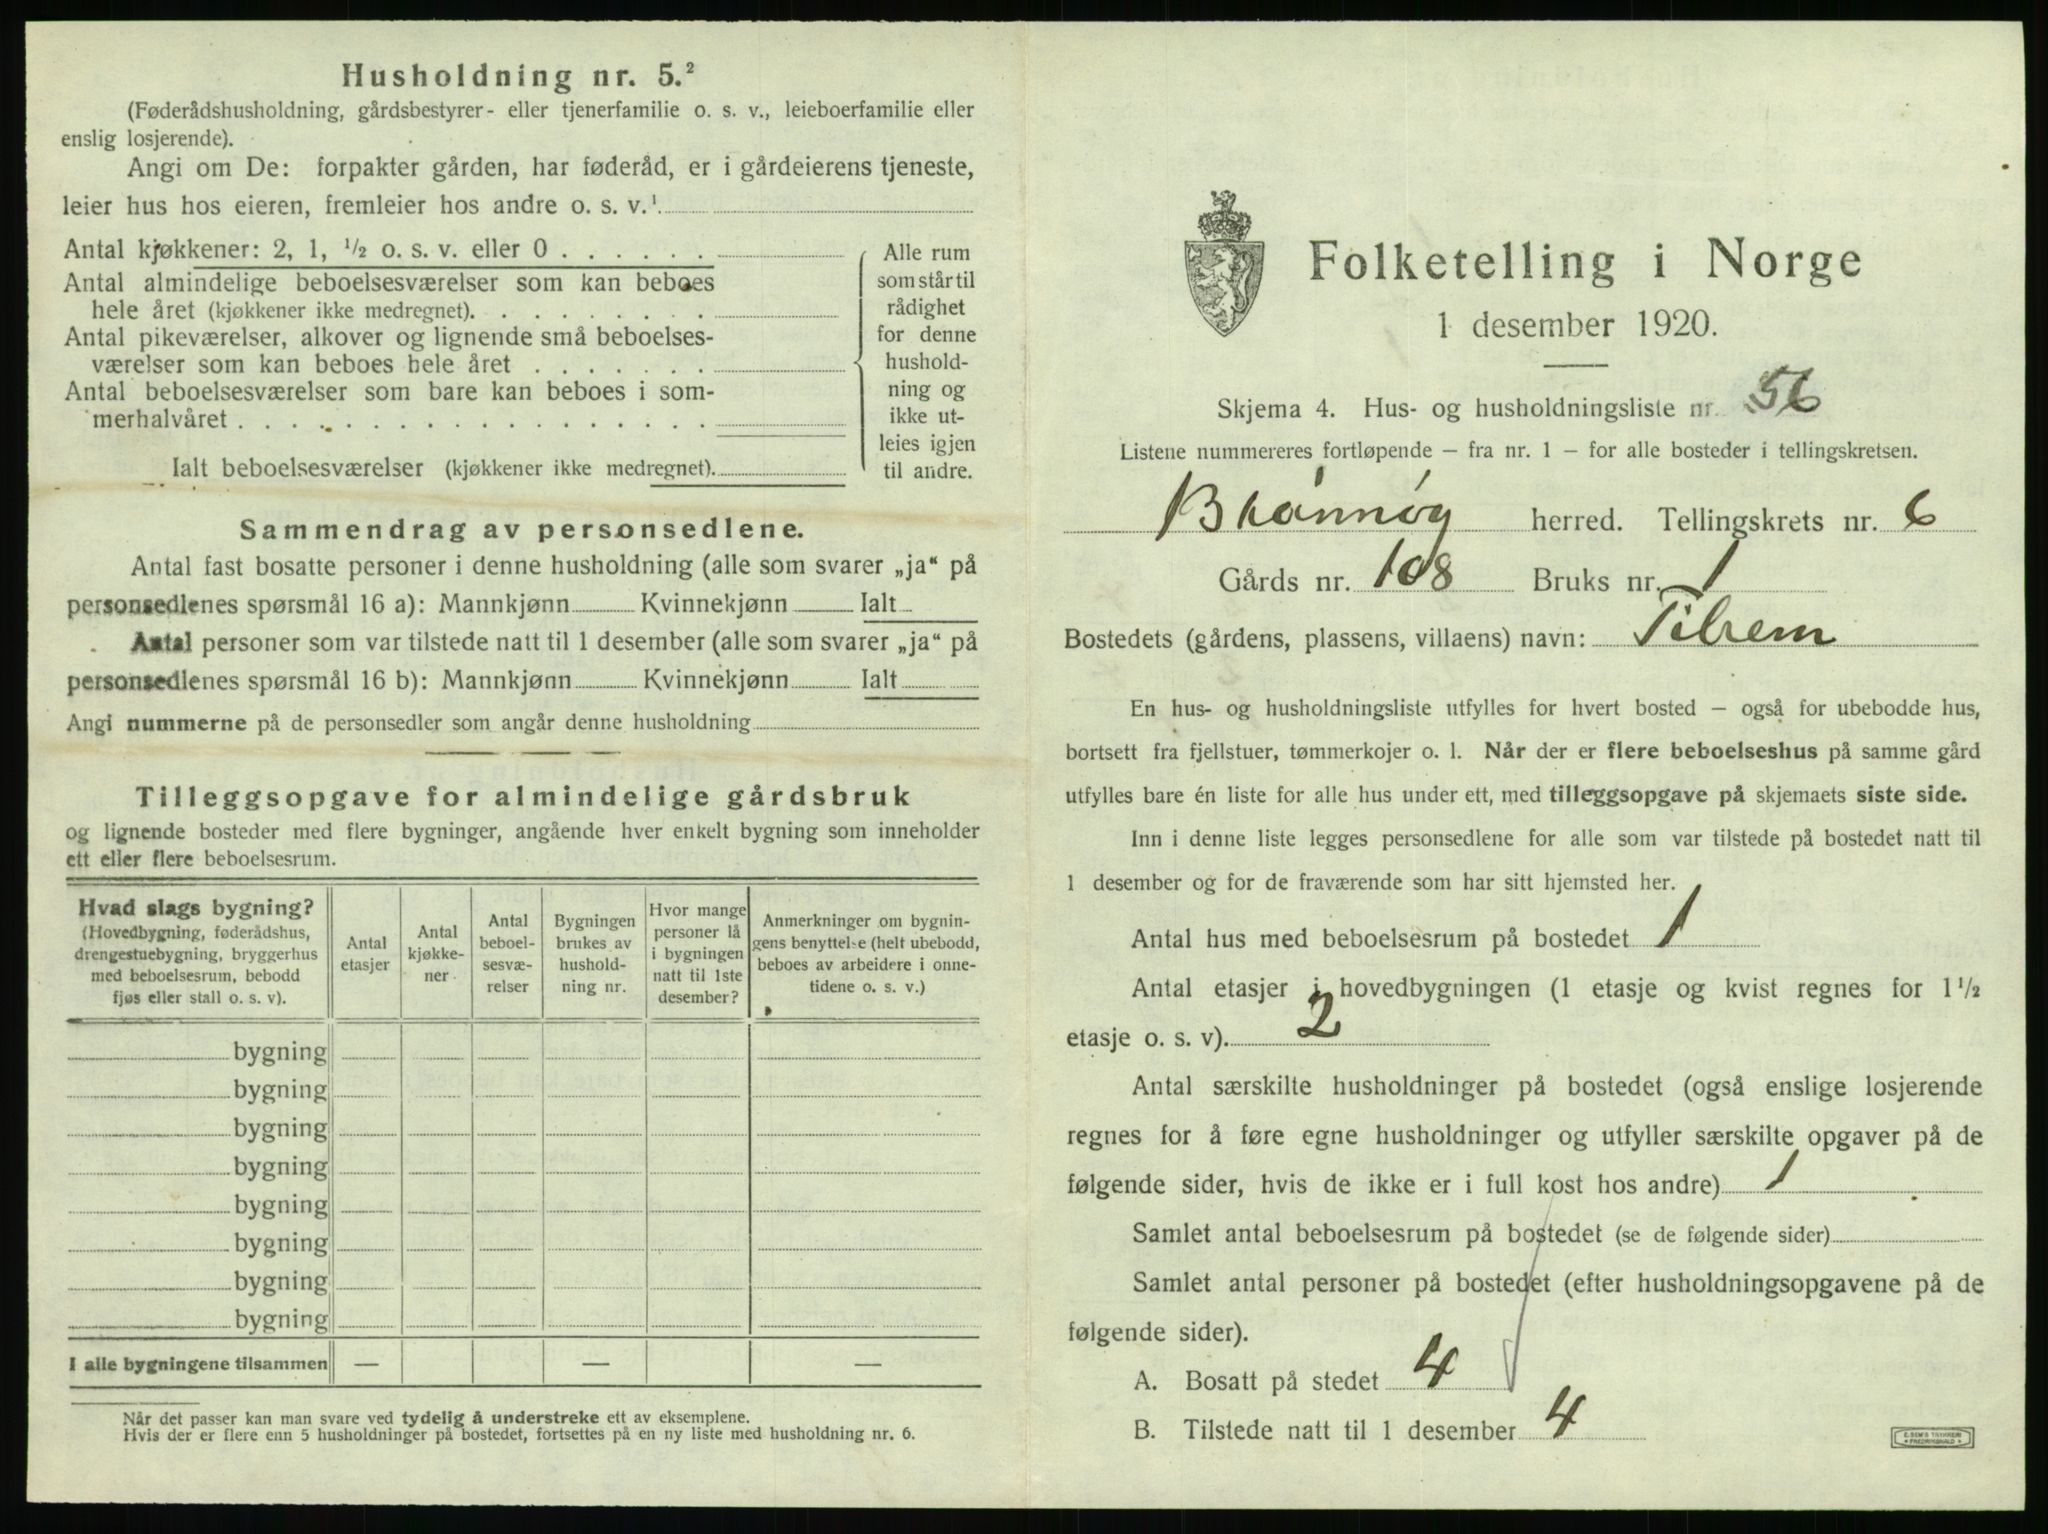 Husholdning nr. 5.²
(Føderådshusholdning, gårdsbestyrer- eller tjenerfamilie o. s. v., leieboerfamilie eller
enslig losjerende).
Angi om De: forpakter gården, har føderåd, er i gårdeierens tjeneste,
leier hus hos eieren, fremleier hos andre o. s. v.¹
Antal kjøkkener: 2, 1, ½ o. s. v. eller 0 . . . . . .
Antal almindelige beboelsesværelser som kan beboes
hele året (kjøkkener ikke medregnet). . . . . . . . .
Antal pikeværelser, alkover og lignende små beboelses-
værelser som kan beboes hele året . . . . . . .
Antal beboelsesværelser som bare kan beboes i som-
merhalvåret . . . . . . . . . . . . . . . . . .
Ialt beboelsesværelser (kjøkkener ikke medregnet).
Alle rum
som står til
rådighet
for denne
hushold-
ning og
ikke ut-
leies igjen
til andre.
Sammendrag av personsedlene.
Antal fast bosatte personer i denne husholdning (alle som svarer „ja“ på
personsedlenes spørsmål 16 a): Mannkjønn Kvinnekjønn Ialt
Antal personer som var tilstede natt til 1 desember (alle som svarer „ja“ på
personsedlenes spørsmål 16 b): Mannkjønn Kvinnekjønn Ialt
Angi nummerne på de personsedler som angår denne husholdning
Tilleggsopgave for almindelige gårdsbruk
og lignende bosteder med flere bygninger, angående hver enkelt bygning som inneholder
ett eller flere beboelsesrum.
Hvad slags bygning?
(Hovedbygning, føderådshus,
drengestuebygning, bryggerhus
med beboelsesrum, bebodd
fjøs eller stall o. s. v).
Antal
etasjer
Antal
kjøkke-
ner
Antal
beboel-
sesvæ-
relser
Bygningen
brukes av
hushold-
ning nr.
Hvor mange
personer lå
i bygningen
natt til 1ste
desember?
Anmerkninger om bygnin-
gens benyttelse (helt ubebodd,
beboes av arbeidere i onne-
tidene o. s. v.)
bygning
bygning
bygning
bygning
bygning
bygning
bygning
bygning
I alle bygningene tilsammen — — —
Når det passer kan man svare ved tydelig å understreke ett av eksemplene.
Hvis der er flere enn 5 husholdninger på bostedet, fortsettes på en ny liste med husholdning nr. 6.
Folketelling i Norge
1 desember 1920.
Skjema 4. Hus- og husholdningsliste nr. 56
Listene nummereres fortløpende – fra nr. 1 – for alle bosteder i tellingskretsen.
Brønnøy herred. Tellingskrets nr. 6
Gårds nr. 108 Bruks nr. 1
Bostedets (gårdens, plassens, villaens) navn: Tilrem
En hus- og husholdningsliste utfylles for hvert bosted – også for ubebodde hus,
bortsett fra fjellstuer, tømmerkojer o. l. Når der er flere beboelseshus på samme gård
utfylles bare én liste for alle hus under ett, med tilleggsopgave på skjemaets siste side.
Inn i denne liste legges personsedlene for alle som var tilstede på bostedet natt til
1 desember og for de fraværende som har sitt hjemsted her.
Antal hus med beboelsesrum på bostedet 1
Antal etasjer i hovedbygningen (1 etasje og kvist regnes for 1 ½
etasje o. s. v). 2
Antal særskilte husholdninger på bostedet (også enslige losjerende
regnes for å føre egne husholdninger og utfyller særskilte opgaver på de
følgende sider, hvis de ikke er i full kost hos andre) 1
Samlet antal beboelsesrum på bostedet (se de følgende sider)
Samlet antal personer på bostedet (efter husholdningsopgavene på de
følgende sider).
A. Bosatt på stedet 4
B. Tilstede natt til 1 desember 4